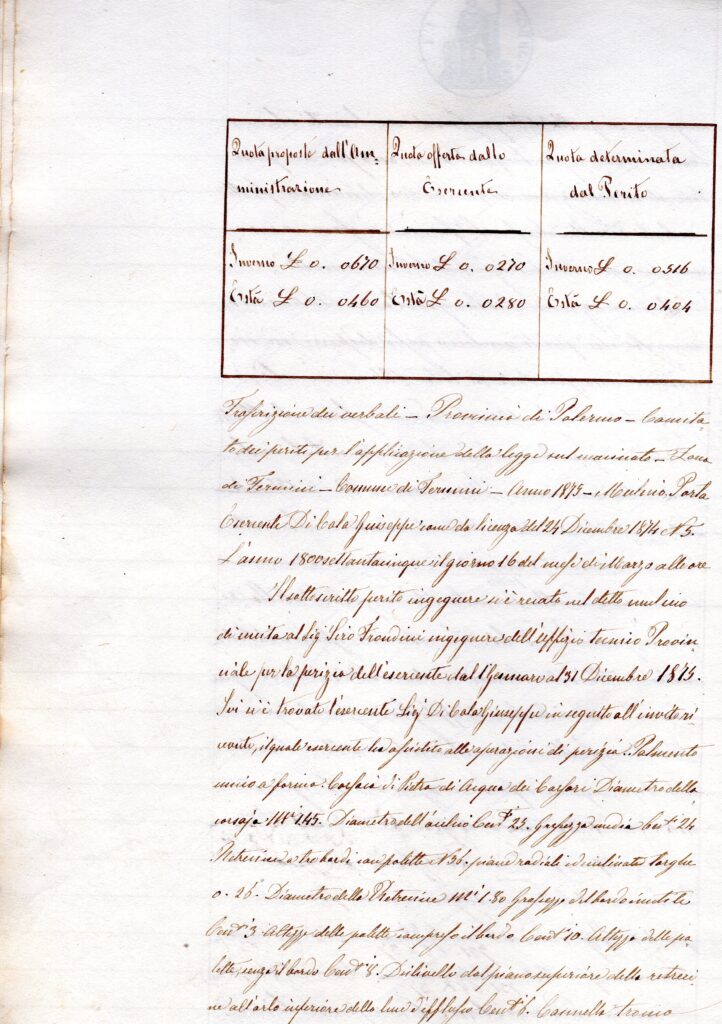 Quota proposte dall'Am=
ministrazione
Quota offerta dallo
Esercente
Quota determinata
dal Perito
Inverno £ 0. 0670
Està £ 0. 0460
Inverno £ 0. 0270
Està £ 0. 0280
Inverno £ 0. 0516
Està £ 0. 0404
Trascrizione dei verbali – Provincia di Palermo – Comita-
to dei periti per l'applicazione della legge sul macinato – Zona
di Termini – Comune di Termini – Anno 1875 – Mulino Porta
Esercente Di Cala Giuseppe come da licenza del 24 Dicembre 1874 N 5.
L'anno 1800settantacinque il giorno 16 del mese di Marzo alle ore
Il sottoscritto perito ingegnere si è recato nel detto mulino
di unita al Sig Siro Frondini ingegnere dell'uffizio tecnico Provin-
ciale per la perizia dell'esercente dal 1 Gennaro al 31 Dicembre 1875.
Ivi si è trovato l'esercente Sig Di Cala Giuseppe in seguito all'invito ri-
cevuto, il quale esercente ha assistito alle operazioni di perizia. Palmento
unico a forino. Corsoia di Pietra di Acqua dei Corsari Diametro della
corsoja Mi 1.45. Diametro dell'occhio Cent 23. Grossezza media Cent 24
Retrecine a tre bordi con palette N 36. piane radiali ed inclinate larghe
0. 26. Diametro della Retrecine Mi 1.80 Grossezza del bordo
Centi 3. Altezza delle palette compreso il bordo Centi 10. Altezza delle pa-
lette, senza il bordo Centi 8. Dislivello dal piano superiore della retreci-
ne all'orlo inferiore della luce d'efflusso Centi 6. Cannella tronco